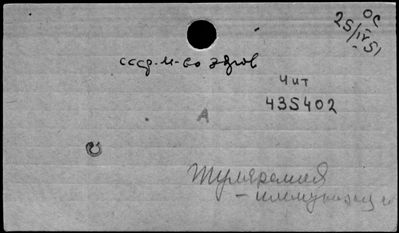 ОС
25/IV 51
СССР. М-во здров
Чит
435402
А
Туляремия
- иммунизация